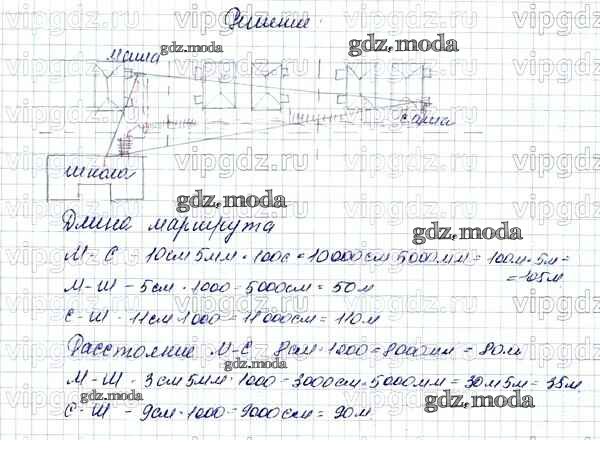 Решение
Маша
Саша
школа
Длина маршрута
М-С - 10см 5мм · 1000 = 10000см 5000мм = 100м · 5м =
= 105м
М-Ш - 5см · 1000 - 5000см = 50м
С-Ш - 11см 1000 - 11000см = 110м
Расстояние М-С - 8см · 1000 = 8000мм = 80м
М-Ш - 3см 5мм · 1000 - 3000см · 5000мм = 30м 5м = 35м
С-Ш - 9см · 1000 - 9000см = 90м
gdz.moda
gdz.moda
gdz.moda
gdz.moda
gdz.moda
gdz.moda
gdz.moda
vipgdz.ru